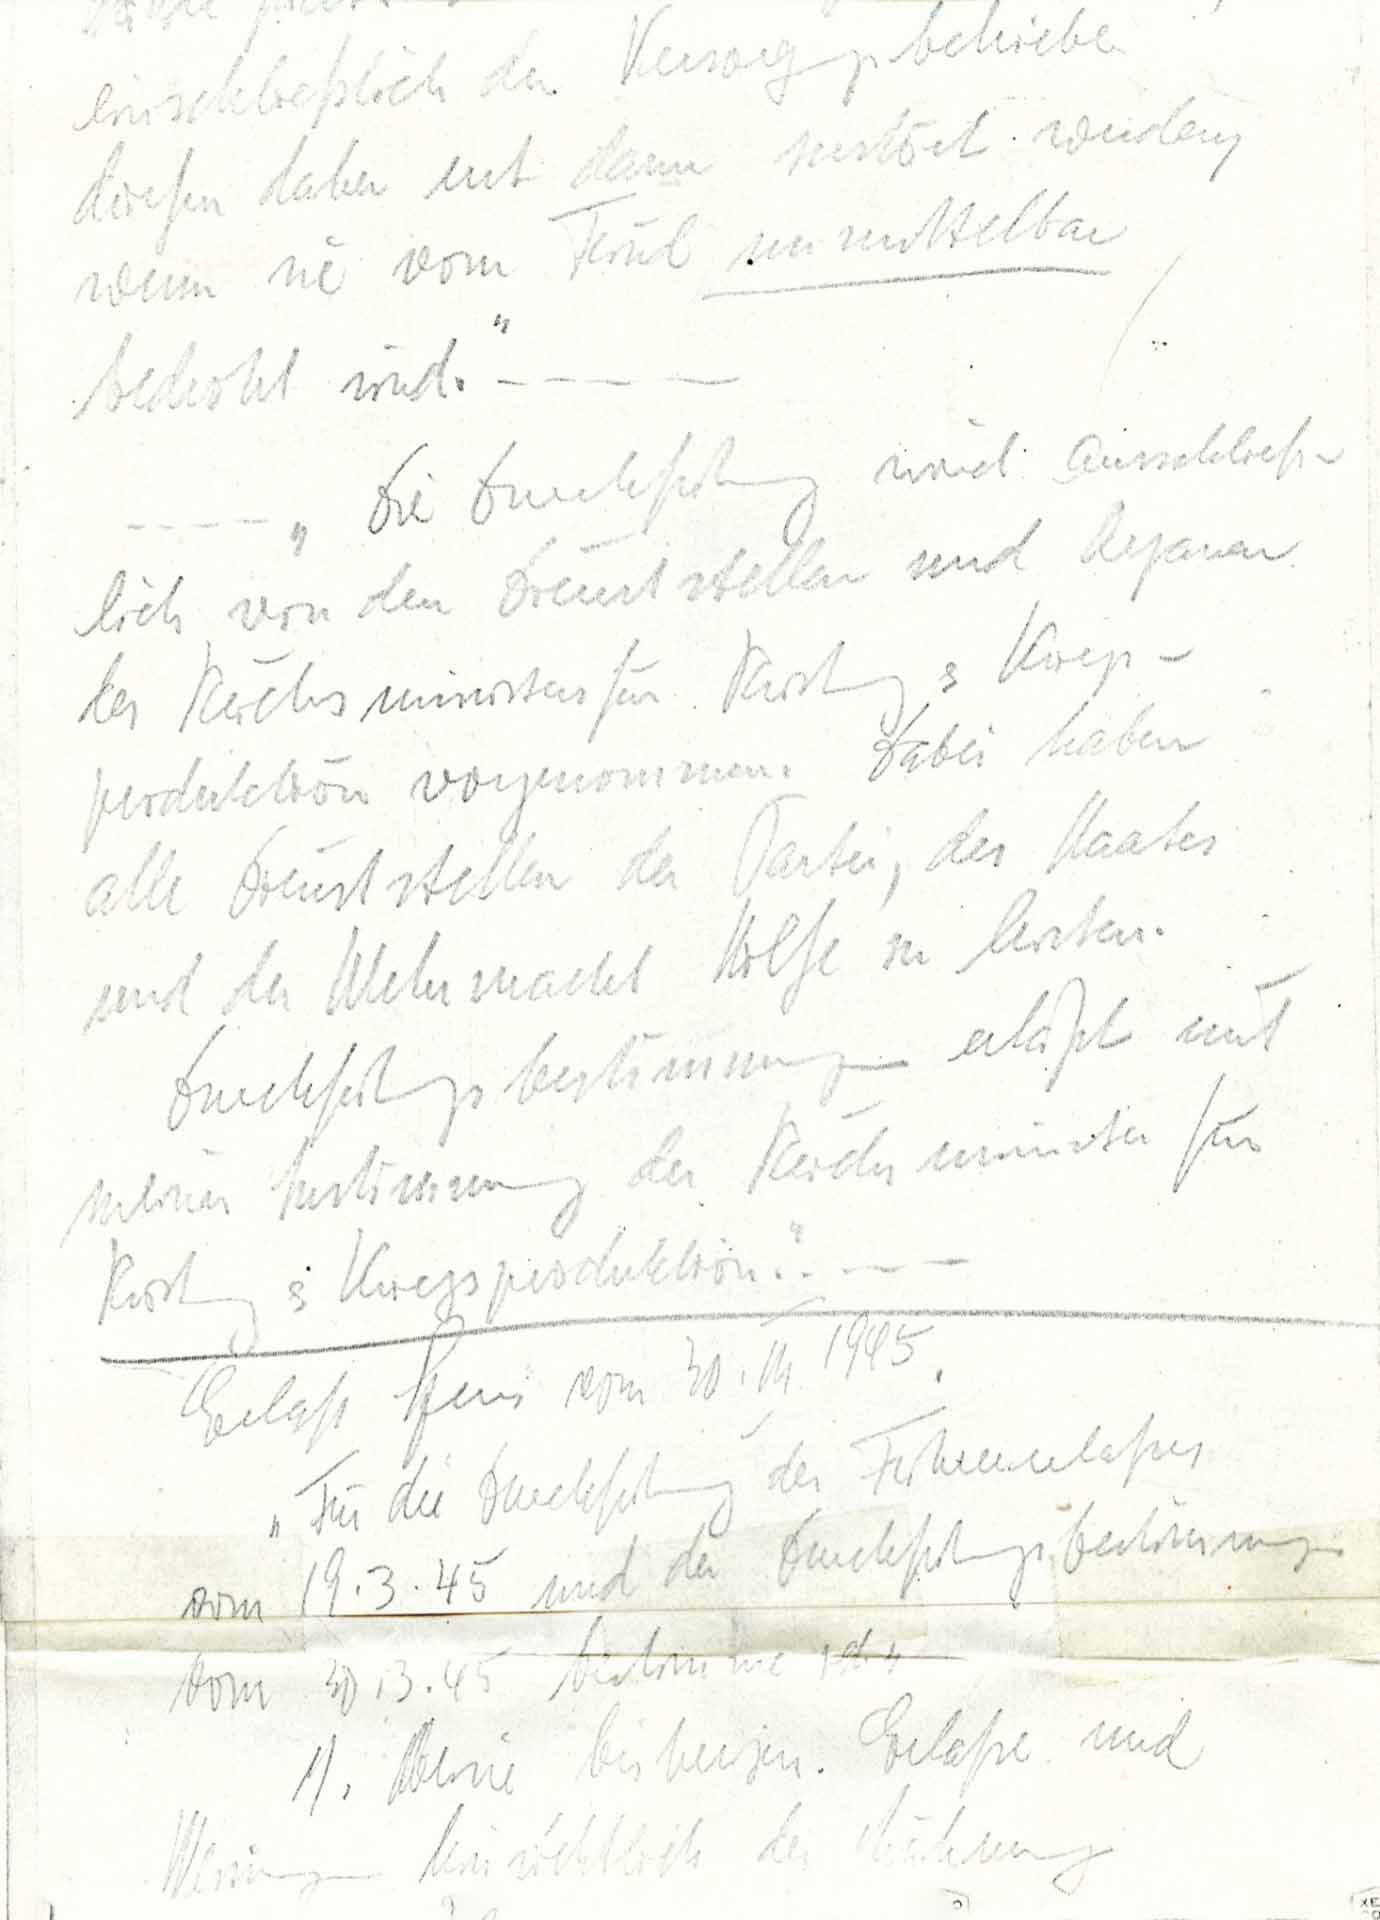 einschließlich der Versorgungsbetriebe
dürfen daher erst dann zerstört werden,
wenn sie vom Feind unmittelbar
bedroht sind." - - - -
- - - - „Die Durchführung wird ausschließ-
lich von den Dienststellen und Organen
des Reichsministers für Rüstung & Kriegs-
produktion vorgenommen. Dabei haben
alle Dienststellen der Partei, des Staates
und der Wehrmacht Hilfe zu leisten.
Durchführungsbestimmungen erläßt mit
meiner Zustimmung der Reichsminister für
Rüstung & Kriegsproduktion." - - -
Erlaß vom 30. III. 1945.
„Für die Durchführung des Führererlaßes
vom 19.3.45 und der Durchführungsbestimmungen
vom 30.3.45 bestimme ich:
1). Meine bisherigen Erlaße und
Weisungen hinsichtlich der Lähmung